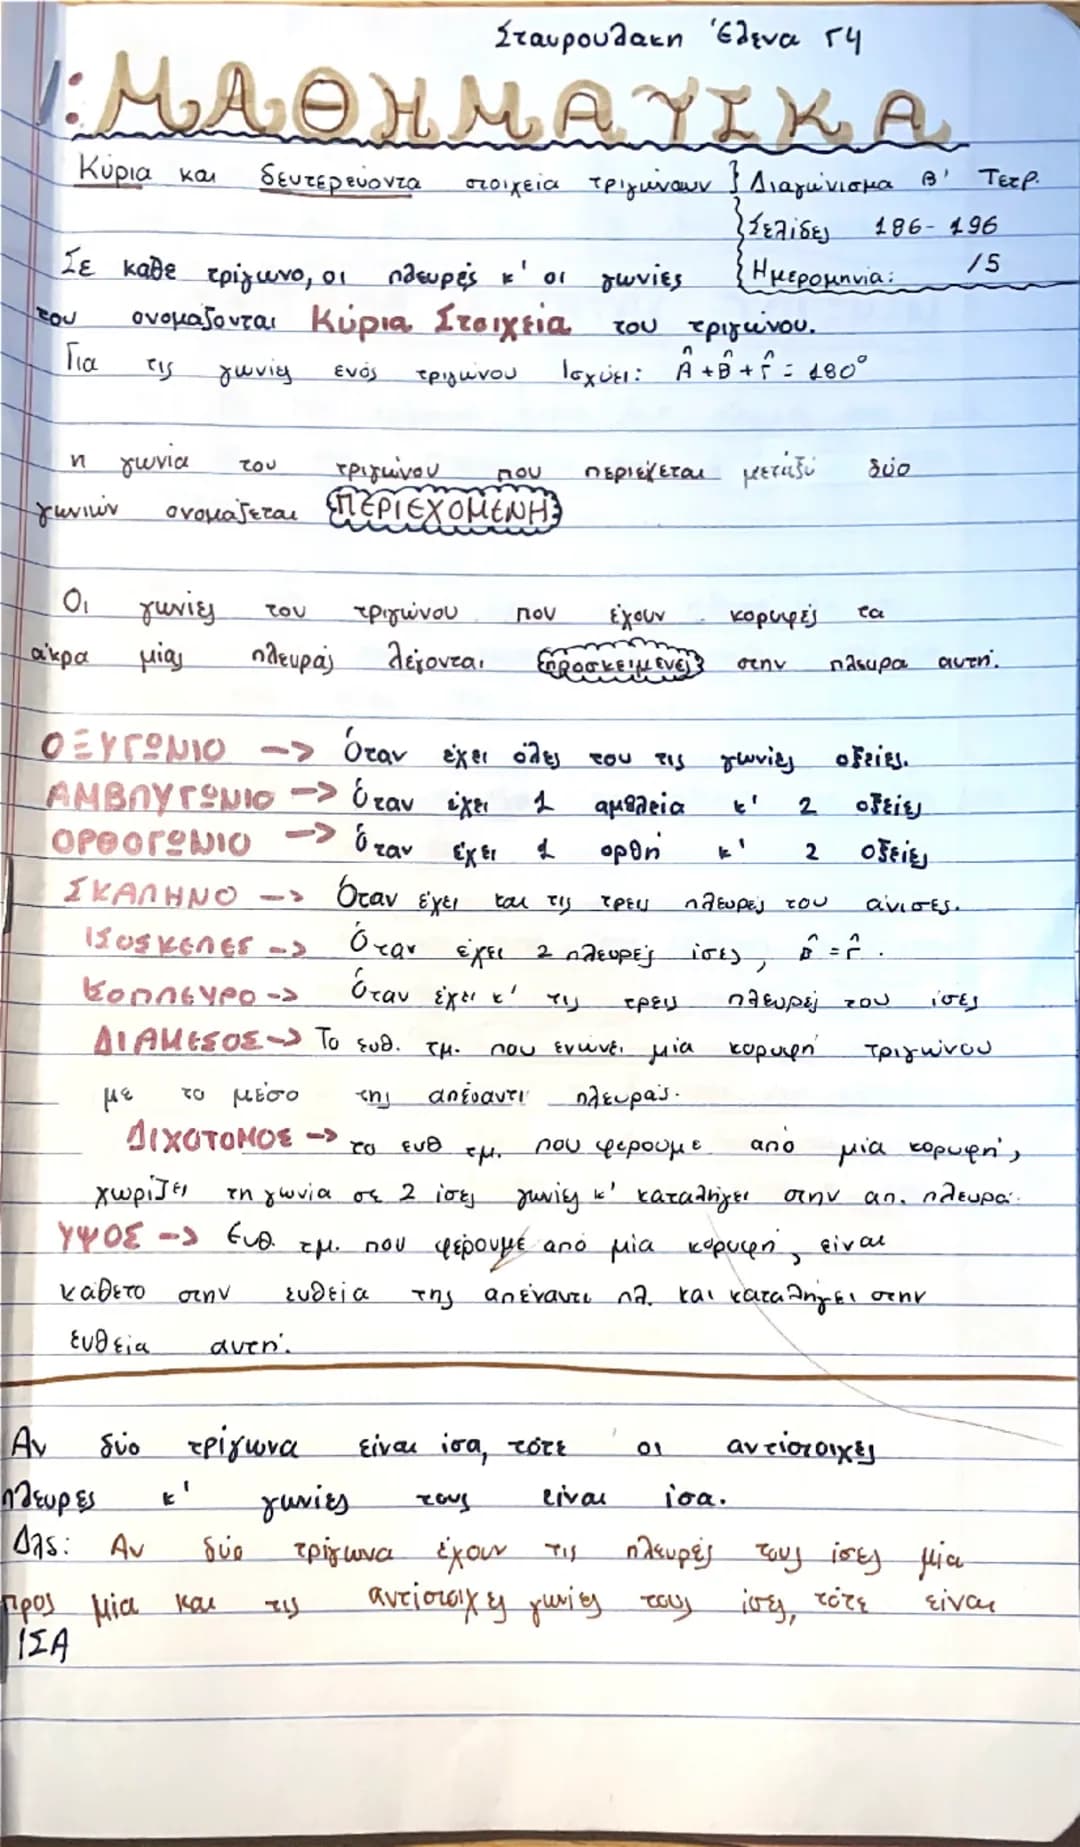 Σταυρουλακη Έλενα Γ4
ΜΑΘΗΜΑΤΙΚΑ
Κύρια και δευτερεύοντα στοιχεία τριγώνων } Διαγώνισμα Β' Τετρ.
Σελίδες 186-196
Σε καθε τρίγωνο, οι πλευρές κ' οι γωνίες
Ημερομηνία: /5
του ονομαζονται Κύρια Στοιχεία του τριγώνου.
Για τις γωνίες ενός τριγώνου Ισχύει: Â + B̂ + Γ̂ = 180°
η γωνία του τριγώνου που περιέχεται μεταξύ δύο
γωνιών ονομάζεται ΠΕΡΙΕΧΟΜΕΝΗ
Οι γωνίες του τριγώνου που έχουν κορυφές τα
άκρα μίας πλευράς λέγονται προσκειμενες στην πλευρα αυτή.
ΟΞΥΓΩΝΙΟ -> Όταν έχει όλες του τις γωνίες οξείες.
ΑΜΒΛΥΓΩΝΙΟ -> Όταν έχει 1 αμβλεία κ' 2 οξείες
ΟΡΘΟΓΩΝΙΟ -> Όταν έχει 1 ορθή κ' 2 οξείες
ΣΚΑΛΗΝΟ -> Όταν έχει και τις τρεις πλευρές του άνισες.
ΙΣΟΣΚΕΛΕΣ -> Όταν έχει 2 πλευρές ίσες, B̂ = Γ̂.
Όταν έχει κ' τις τρεις πλευρές του ίσες
ΔΙΑΜΕΣΟΣ -> Το ευθ. τμ. που ενώνει μία κορυφή τριγώνου
με το μέσο της απέναντι πλευράς.
ΔΙΧΟΤΟΜΟΣ -> το ευθ τμ. που φερουμε από μία κορυφή,
χωρίζει τη γωνία σε 2 ίσες γωνίες κ' καταλήγει στην απ. πλευρά.
ΥΨΟΣ -> Ευθ. τμ. που φέρουμε από μία κορυφή, είναι
κάθετο στην ευθεία της απέναντι πλ. και καταλήγει στην
ευθεία αυτή.
Αν δύο τρίγωνα είναι ίσα, τότε οι αντίστοιχες
πλευρες κ' γωνίες τους είναι ίσα.
Δλς: Αν δύο τρίγωνα έχουν τις πλευρές τους ίσες μία
προς μία και τις αντίστοιχες γωνίες τους ίσες, τότε είναι
ΙΣΑ